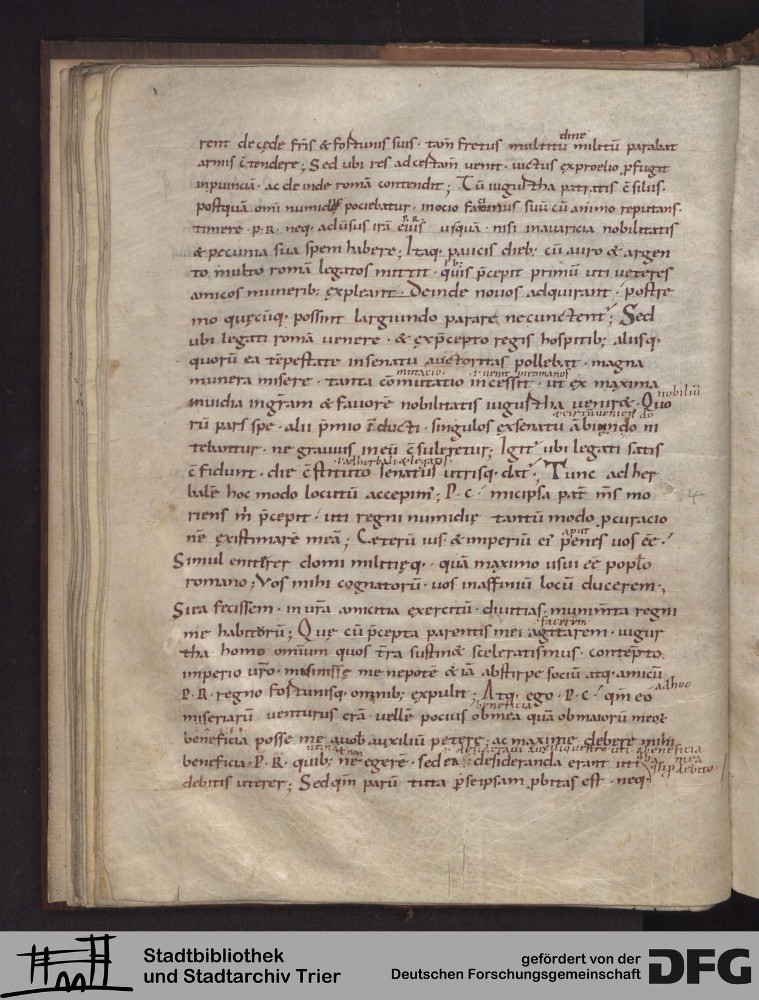 rent de cęde fr̄is & fortunis suis · tam̄ fretus multitu dine militū parabat
armis c̄tendere; Sed ubi res ad certam̄ venit · victus ex proelio ꝓfugit
inpuinciā · ac deinde romā contendit; Tū iugurtha patratis c̄siliis ·
postquā omi numidię pociebatur · inocio facinus suū cū animo reputans ·
timere · p · R · neq · aduersus irā eius usquā · nisi inavaricia nobilitatis
& pecunia sua spem habere; Itaq · paucis dieb; cū auro & argen
to multo romā legatos mittit · quis p̄cepit primū uti veteres
amicos munerib; expleant · Deinde novos adquirant · postre
mo quęcūq · possint largiundo parare ne cunctent; Sed
ubi legati romā venere · & exp̄cepto regis hospitib; aliisq ·
quorū ea tēpestate insenatu auctoritas pollebat · magna
munera misere · tanta cōmutatio incessit · ut ex maxima
invidia ingr̄am & favorē nobilitatis iugurtha venirę · Quo
rū pars spe · alii p̄mio īducti · singulos exsenatu ābiundo ni
tebantur · ne gravius ineū c̄suleretur; Igit ubi legati satis
c̄fidunt · die c̄stituto senatus utrisq · dat; Tunc adher
balē hoc modo locutū accepim; P · c · micipsa pat̄ m̄s mo
riens m̄ p̄cepit · uti regni numidię tantū modo ꝓcuracio
nē existimarē meā; Cęterū ius & imperiū ei penes vos ēe ·
Simul eniterer domi militięq · quā maximo usui ēe poplo
romano; Vos mihi cognatorū · vos inaffiniū locū ducerem ·
Si ea fecissem · in ūra amicitia exercitū · divitias · munimta regni
me habitorū; Quę cū p̄cepta parentis mei agitarem · iugur
tha homo omīum quos t̄ra sustin& sceleratissimus · contēpto
imperio ūro · masinisse me nepotē & iā abstirpe sociū atq · amicū
P · R · regno fortunisq · omnib; expulit; Atq · ego · P · C · qm̄ eo
miseriarū venturus erā · vellē pocius obmea quā obmaiorū meor
beneficia posse me avob auxiliū petere · ac maxime debere mihi
beneficia · P · R · quib; ne egerē · sed ea desideranda erant uti
debitis uterer; Sed qm̄ parū tuta p̄seipsam ꝓbitas est · neq ·
Stadtbibliothek
und Stadtarchiv Trier
gefördert von der
Deutschen Forschungsgemeinschaft
DFG